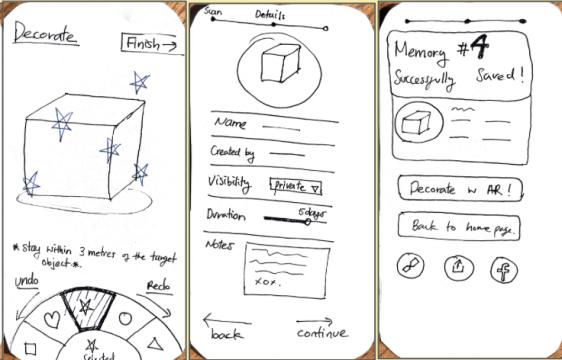 Decorate
Finish →
*Stay within 3 metres of the target
object*.
Undo
Redo
Selected
Scan
Details
Name
Created by
Visibility
private
Duration
5 days
Notes
xox.
back
continue
Memory #4
Successfully Saved!
Decorate w AR!
Back to home page.
f